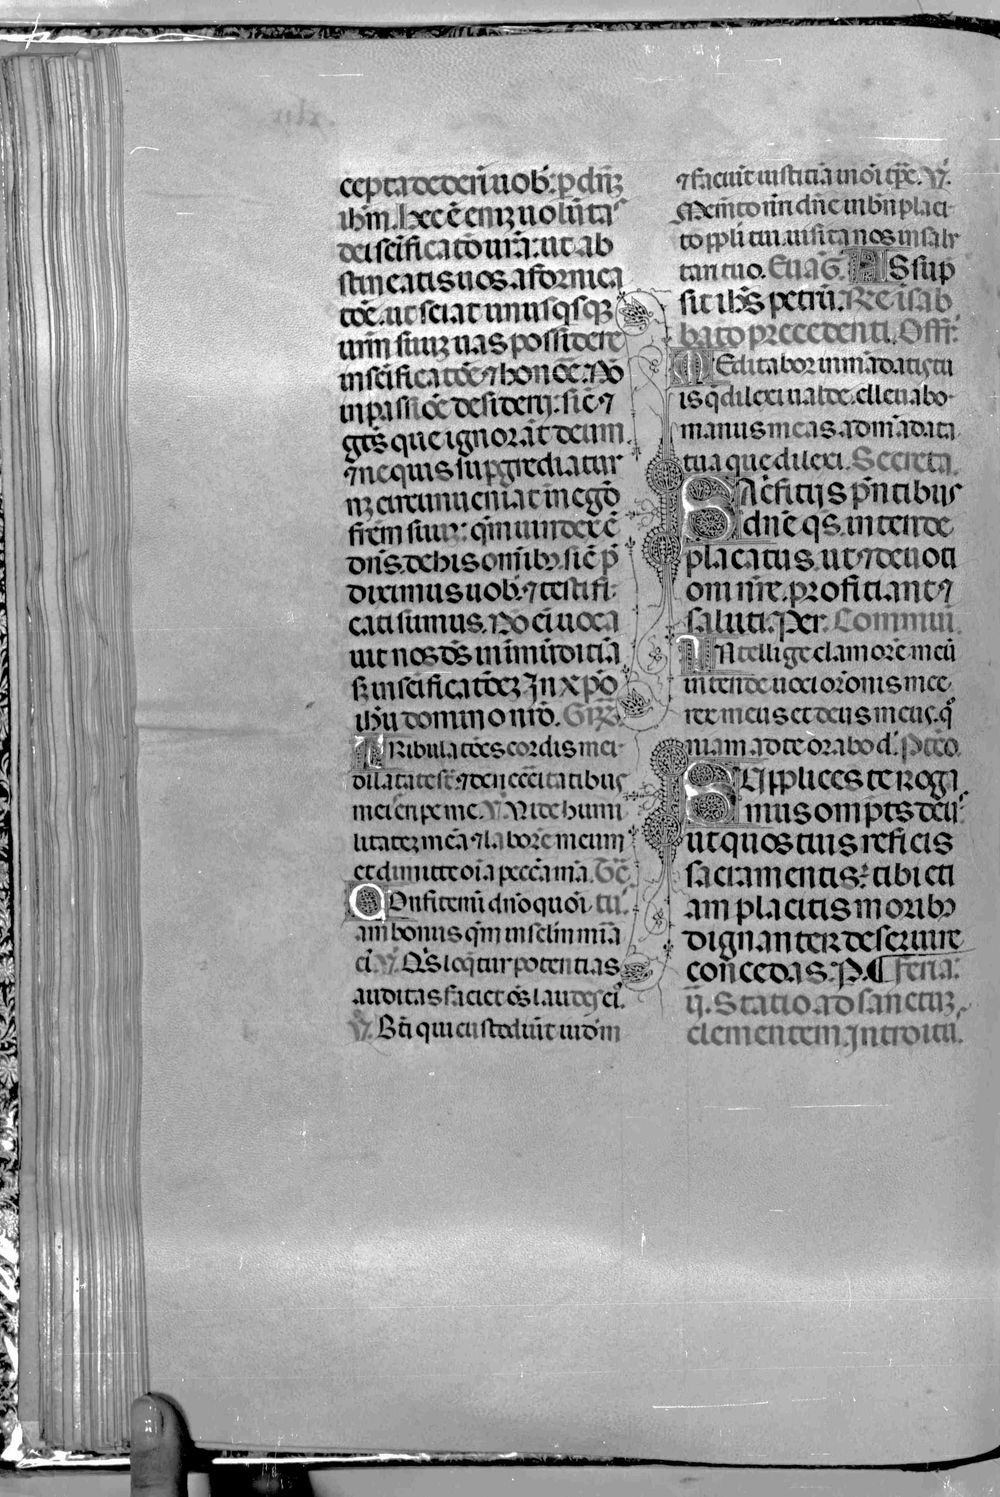 cepta dederī uob: p dn̄ꝫ
ihm̄. Hec ē enīꝫ uolūta
dei sc̄ificatō ur̄a: ut ab
stineatis uos a fornica
tōe. ut sciat unusqsqꝫ
ur̄m suuꝫ uas possidere
in sc̄ificatōe ⁊ honōe. Nō
in passiōe desiderij: sic̄ ⁊
gēts que ignorāt deum
⁊ ne quis suꝑgrediatur
nꝫ circumueniat in egō
frēm suuꝫ: qm̄ uindex ē
dn̄s. de his omībꝫ. sic̄ p̄
diximus uob. ⁊ testifi
cati sumus. Nō ei uoca
uit nos ds̄ in īmūditiā
sꝫ in sc̄ificatōeꝫ. In xp̄o
ihū domino nrō. Grꝫ
TRibulatōes cordis mei
dilatate sr̄. ⁊ de necc̄itatibus
meis eripe me. V. Vide humi
litateꝫ meā ⁊ laborē meum
et dimitte oīa peccā mīa. Tc̄
COnfitemī dnō quoī. tū
am bonus qm̄ in sclm̄ mīa
ei. V. Qs̄ loqtur potentias
auditas faciet os̄ laudes ei.
V. Bt̄i qui custodiūt iudm̄
⁊ faciūt iustitiā in oī tp̄e. V.
Memēto nr̄i dn̄e in bn̄placi
to ppli tui. uisita nos in salr
tari tuo. Euāg. ASsūp
sit ihs̄ petrū. Re ī sab
bato precedenti. Off̄.
MEditabor in mādatis tu
is q̄ dilexi ualde. et leuabo
manus meas ad mādata
tua que dilexi. Secreta.
SAc̄fitijs pn̄tibus
dn̄e qs̄. intende
placatus. ut ⁊ deuoti
oni nr̄e. proficiant ⁊
saluti. Per. Commūī.
INtellige clamorē meū
intende uoci orōnis mee.
rex meus et deus meus. q̄
niam ad te orabo d. Ptcō.
SUpplices te roga
mus omps̄ deus
ut quos tuis reficis
sacramentis: tibi eti
am placitis moribꝫ
dignanter deseruire
concedas. P. ¶ feria.
ij. Statio ad sanctuꝫ
clementem. Introitū.